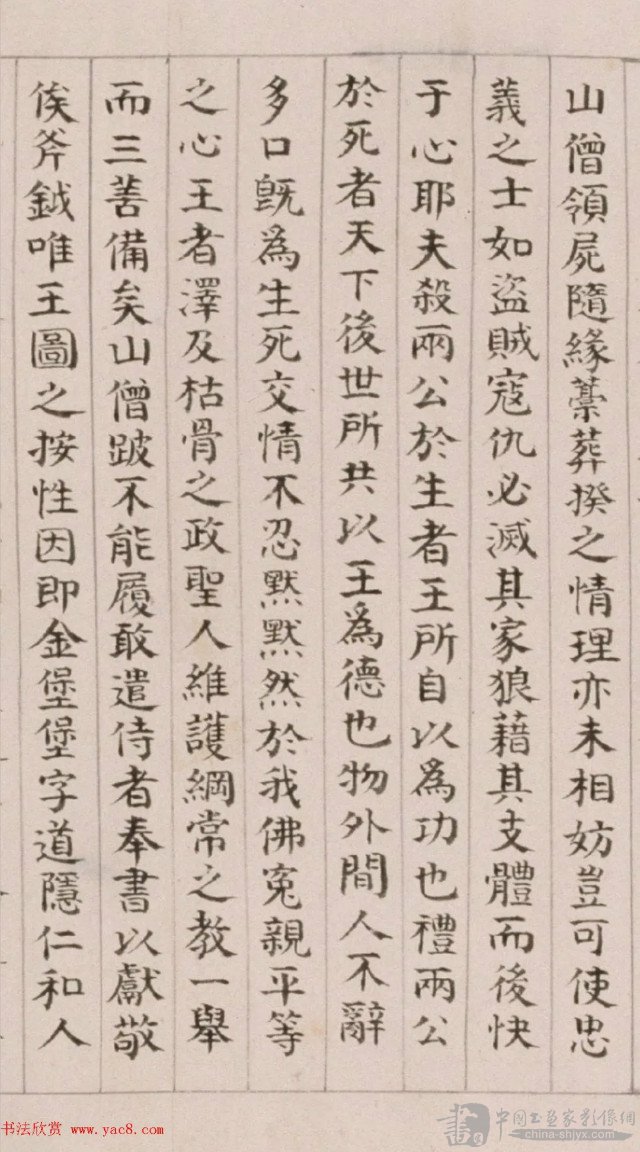 山僧領屍隨緣藁葬揆之情理亦未相妨豈可使忠
義之士如盜賊寇仇必滅其家狼藉其支體而後快
于心耶夫殺兩公於生者王所自以為功也禮兩公
於死者天下後世所共以王為德也物外閒人不辭
多口旣為生死交情不忍默默然於我佛冤親平等
之心王者澤及枯骨之政聖人維護綱常之教一舉
而三善備矣山僧跛不能履敢遣侍者奉書以獻敬
俟斧鉞唯王圖之按性因即金堡堡字道隱仁和人
书法欣赏 www.yac8.com
中国书画家影像網
china-shjyx.com